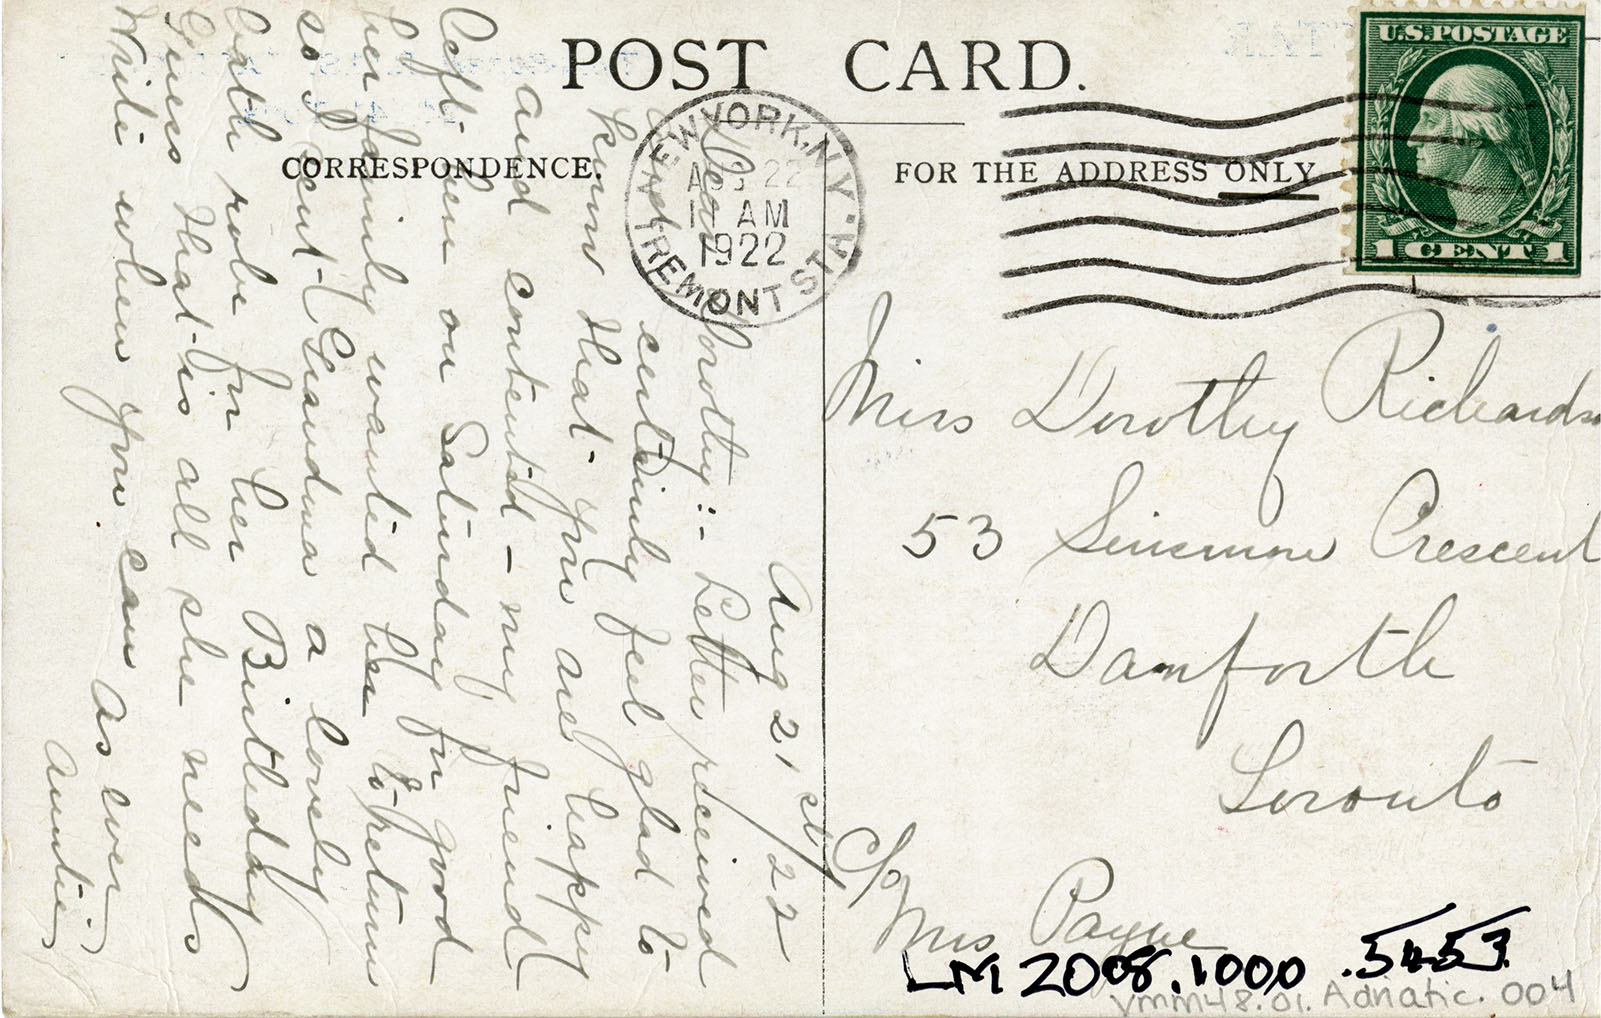 POST CARD.
CORRESPONDENCE.
FOR THE ADDRESS ONLY
U.S. POSTAGE
1 CENT 1
NEW YORK, N.Y.
AUG 22
11 AM
1922
TREMONT STA.
Aug 21st/22
Dear Dorothy:- Letter received
and certainly feel glad to
know that you are happy
and contented - my friend
left her on Saturday for good
her family wanted her to return
so I sent Grandma a lovely
bath robe for her Birthday
Guess that is all she needs
Write when you can as ever
Auntie
Miss Dorothy Richardso
53 Crescent
Danforth
Toronto
c/o
Mrs Payne
LM2008.1000.5453
vmm48.01.Adriatic.004